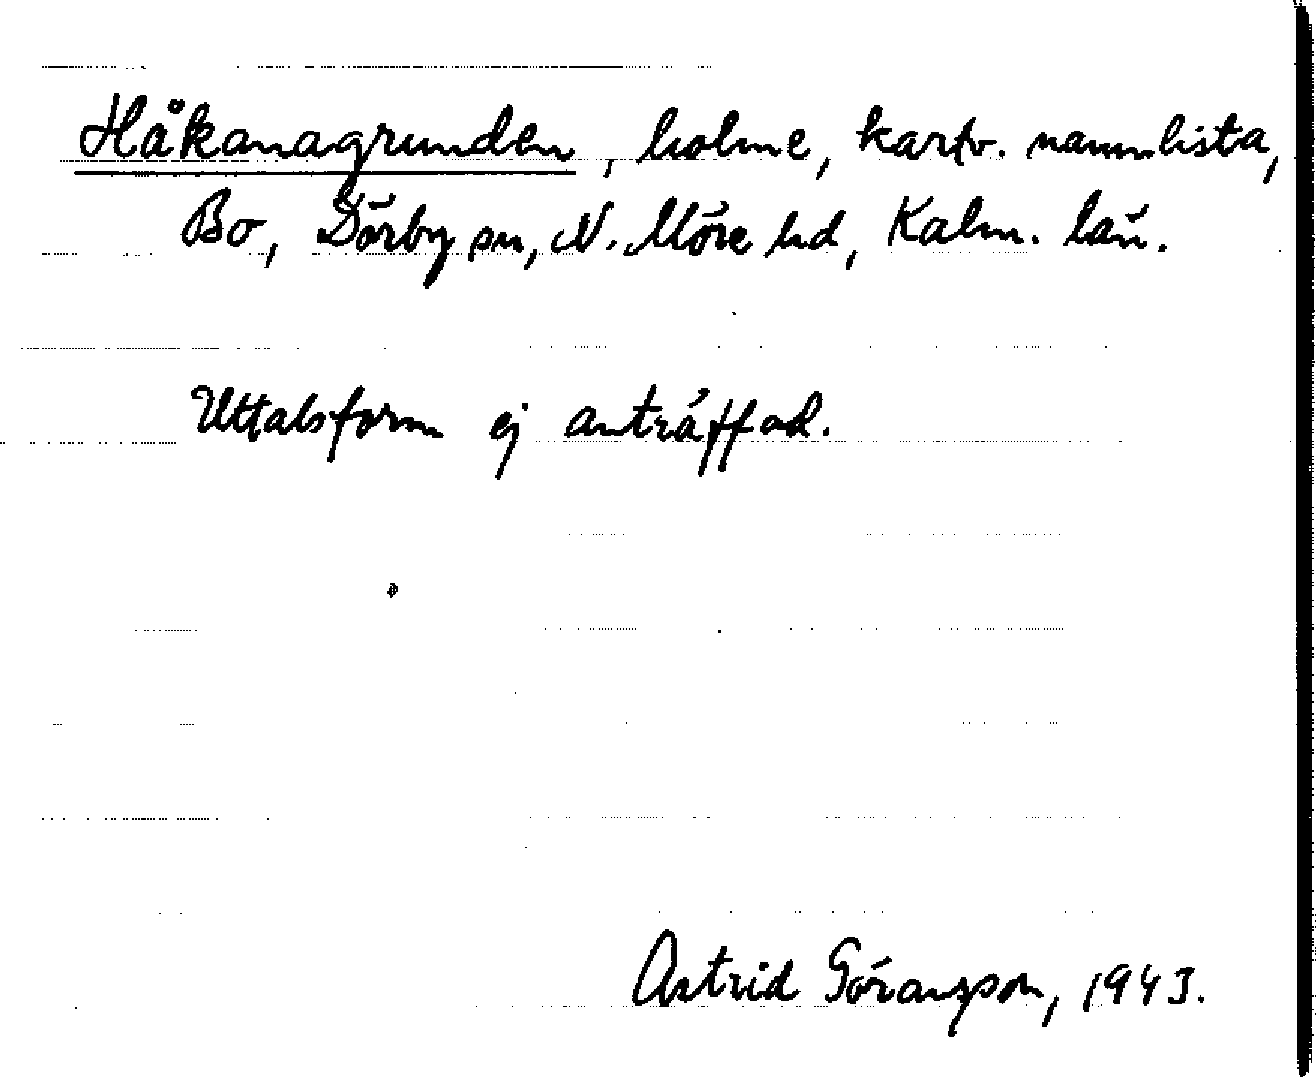 Håkanagrunden, holme, kartv. namnlista,
Bo, Dörby sn, N. Möre hd, Kalm. län.
Uttalsform ej anträffad.
Astrid Göransson, 1943.